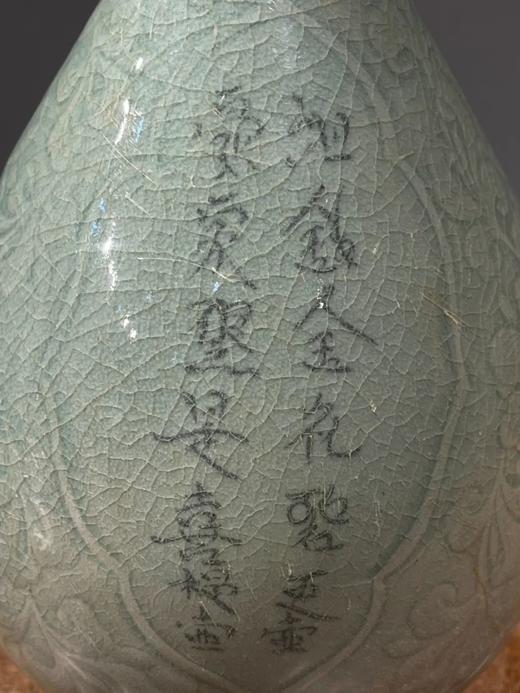 細鏤金花碧玉壺
豪家應是喜提壺